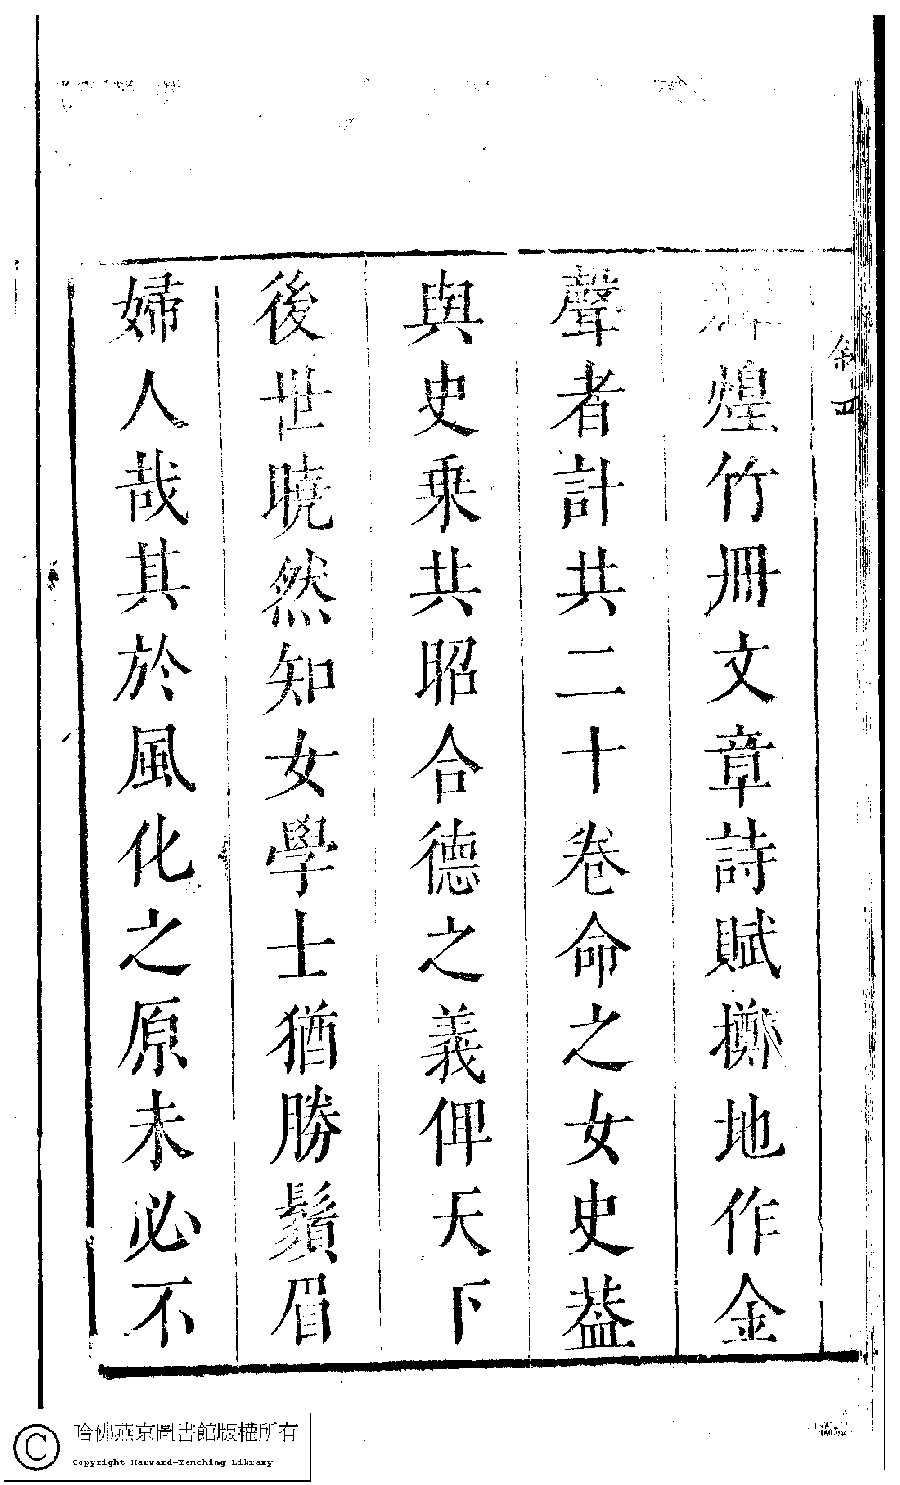 煌竹冊文章詩賦擲地作金
聲者計共二十卷命之女史葢
與史乗共昭合德之義俾天下
後世曉然知女學士猶勝鬚眉
婦人哉其於風化之原未必不
叙 四
哈佛燕京圖書館版權所有
Copyright Harvard-Yenching Library